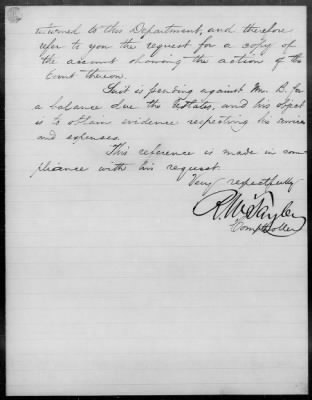 returned to this Department, and therefore
refer to you the request for a copy of
the account showing the action of the
Court thereon.
Suit is pending against Mr. B. for
a balance due the estates, and his object
is to obtain evidence respecting his services
and expenses.
This reference is made in com-
pliance with his request.
Very respectfully
R. W. Tayler
Comptroller